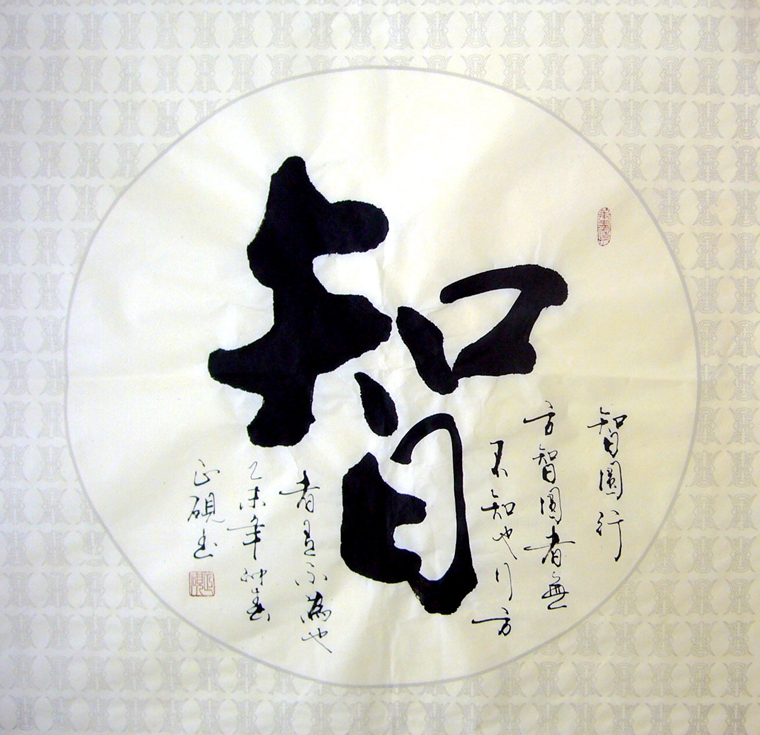 智
智圓行
方智圓者無
不知也行方
者有不為也
乙未年仲春
正硯書